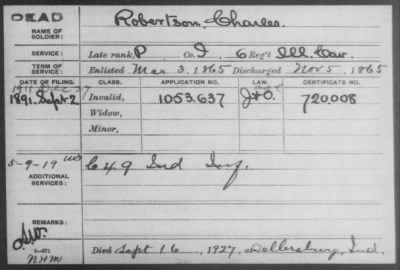 DEAD
Robertson, Charles.
NAME OF SOLDIER:
SERVICE: Late rank, P Co. I, 6 Reg't Ill. Cav.
TERM OF SERVICE: Enlisted Mar 3, 1865 Discharged Nov 5, 1865
DATE OF FILING. CLASS. APPLICATION NO. LAW. CERTIFICATE NO.
1891. Sept 2 Invalid, 1053.637 720.008
Widow,
Minor,
5-9-19 C 49 Ind Inf.
ADDITIONAL SERVICES:
REMARKS:
NHM
Died Sept 16, 1927, Sellersburg, Ind.